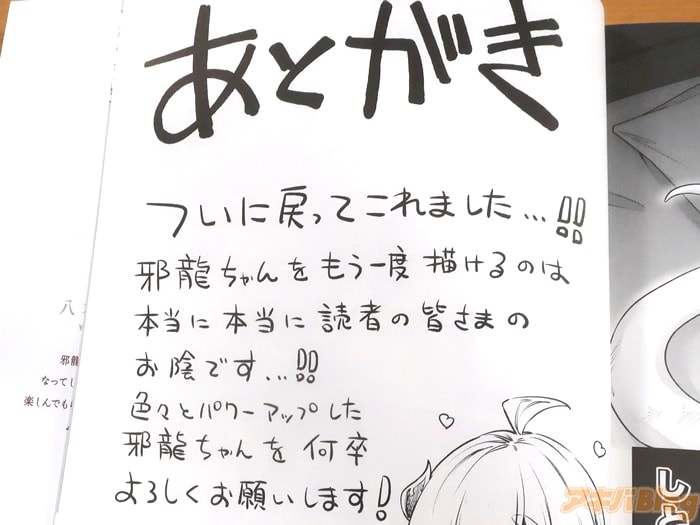 あとがき
ついに戻ってこれました…!!
邪龍ちゃんをもう一度描けるのは
本当に本当に読者の皆さまの
お陰です…!!
色々とパワーアップした
邪龍ちゃんを何卒
よろしくお願いします!
八
邪龍
なってし
楽しんでも
しと
アキバBlog